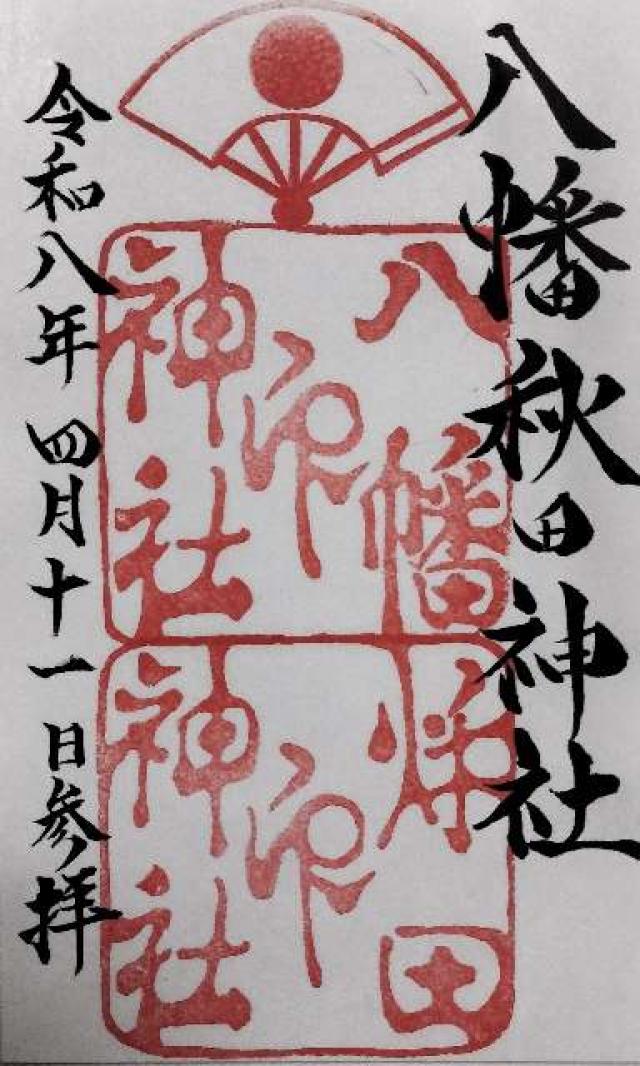 八幡秋田神社
八幡
神印
神社
秌田
神印
神社
令和八年四月十一日参拝